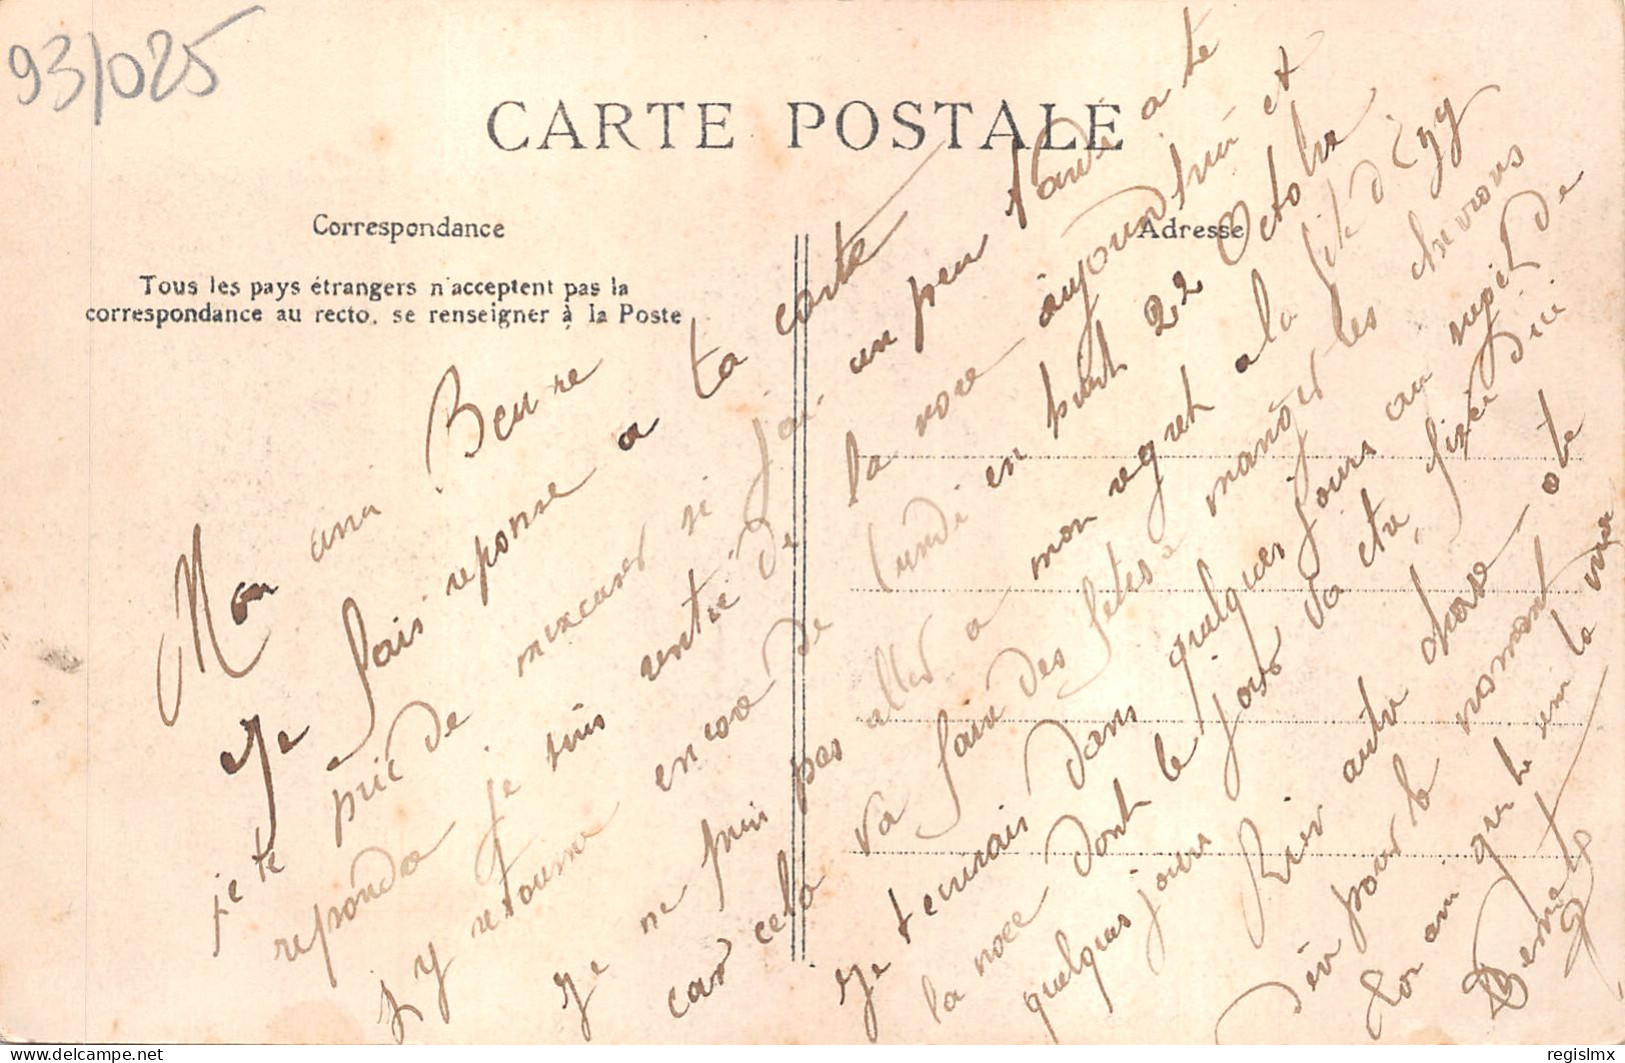 93/025
CARTE POSTALE
Correspondance
Adresse
Tous les pays étrangers n'acceptent pas la
correspondance au recto, se renseigner à la Poste
Mon ami Beurre
Je fais reponse a ta carte
je te prie de mexcuser si jai un peu tardé a te
reponde je suis rentré de la noce aujourdhui et
j y retourne encore de lundi en huit 22 Octobre
Je ne puis pas aller a mon regret a la fete d'Igy
car cela va faire des fetes a manger les chevrons
Je tecrirais dans quelques jours au sujet de
la noce dont le jour va etre fixé dici
quelques jours Rien autre chose a te
dire pour le moment
Ton ami qui te
Bernard
regislmx